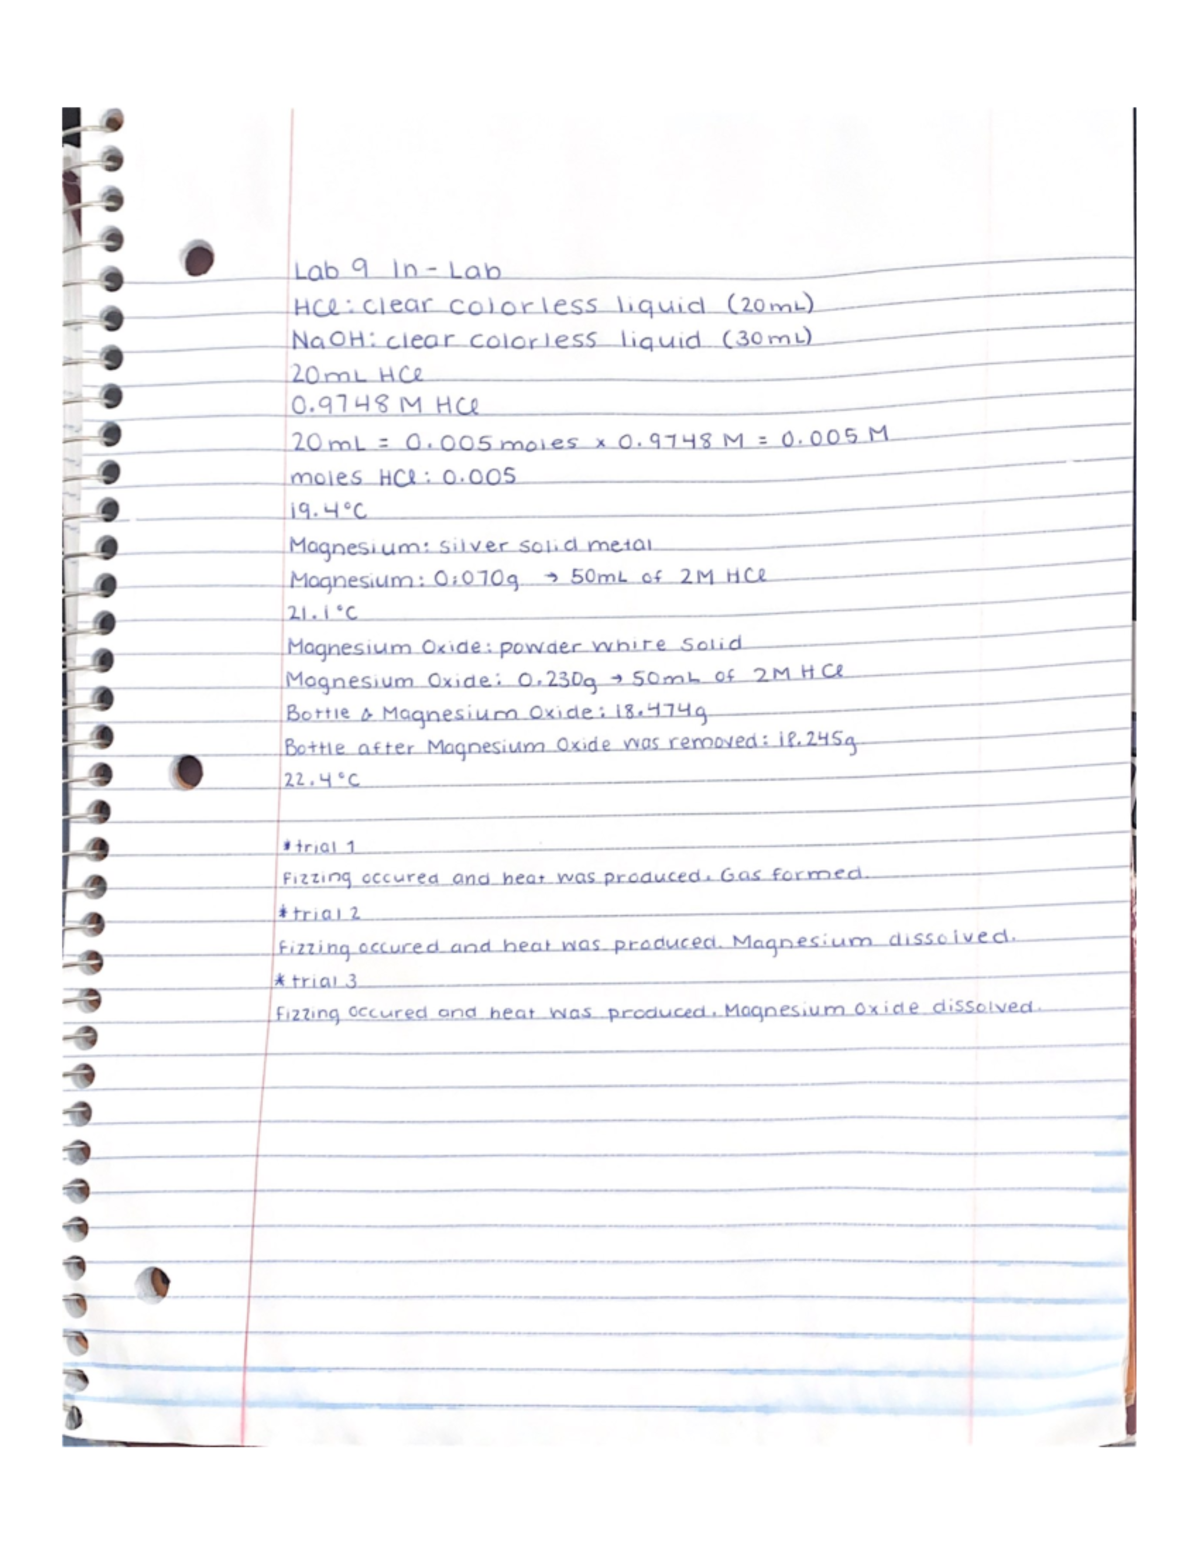 Lab 9 In-Lab
HCl: clear colorless liquid (20mL)
NaOH: clear colorless liquid (30mL)
20mL HCl
0.9748 M HCl
20mL = 0.005 moles x 0.9748 M = 0.005 M
moles HCl: 0.005
19.4°C
Magnesium: silver solid metal
Magnesium: 0.070g → 50mL of 2M HCl
21.1°C
Magnesium Oxide: powder white solid
Magnesium Oxide: 0.230g → 50mL of 2M HCl
Bottle & Magnesium Oxide: 18.474g
Bottle after Magnesium Oxide was removed: 18.245g
22.4°C
*trial 1
Fizzing occured and heat was produced. Gas formed.
*trial 2
Fizzing occured and heat was produced. Magnesium dissolved.
*trial 3
Fizzing occured and heat was produced. Magnesium Oxide dissolved.